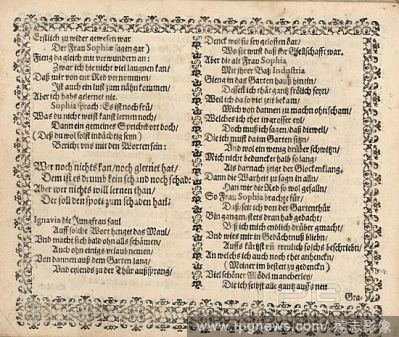 Erstlich zu wider gewesen war
Der Frau Sophiæ sagen gar)
Fieng da gleich mit verwundern an:
Zwar ich hie nicht viel laugnen kan/
Daß wir von eur Red vernommen/
Ist auch ein lust zum nähn kommen/
Aber ich habs gelernet nie.
Sophia sprach: Es ist noch frü/
Was du nicht weist kanst lernen noch/
Dann ein gemeines Sprichwort doch/
(Deß du wolst indächtig sein)
Bericht uns mit den Worten sein:
Wer noch nichts kan/ noch glernet hat/
Dem ist es drumb kein sch und noch schad:
Aber wer nichts will lernen than/
Der soll den spott zum schaden han.
Ignavia die Jungfrau faul
Auff solche Wort henget das Maul/
Vnd macht sich bald ohn alls schämen/
Auch ohn einigs urlaub nemen/
Von dannen auß dem Garten lang/
Vnd eylends zu der Thür außsprang/
Denckt wol sie sey geloffen dar/
Wo sie wust daß ihr Gsellschafft war.
Aber die alt Frau Sophia
Mit ihrer Baß Industria
Gieng in das Garten hauß hinein/
Dessen ich thät gantz frölich seyn/
Weil ich da so viel zeit bekam/
Mich von dannen zu machn ohn scham/
Welches ich thet
Doch muß ich sagen/ daß dieweil
Die ich must da im Garten sitzn/
Vnd wol ein wenig drüber schwitzn/
Mich nicht beduncket halb so lang/
Als darnach zeigt der Glockenklang.
Dann die Warheit zu sagn in alln/
Dan mir die Red so wol gefalln/
So Frau Sophia brachte für/
Daß seit ich von der Gartenthür
Bin gangen/ stets dran hab gedacht/
Biß ich mich endlich drüber gmacht/
Vnd wies mir in Gedächtnuß blieben/
Auffs kürtzt &amp; treulich solchs beschrieben/
An welchs ich auch noch thet anhencken/
(Meiner im besten zu gedencken)
Viel schöner Mödel mancherley/
Die ich selbst alle gantz auffs neu
Gra⸗
www.tpgnews.com/